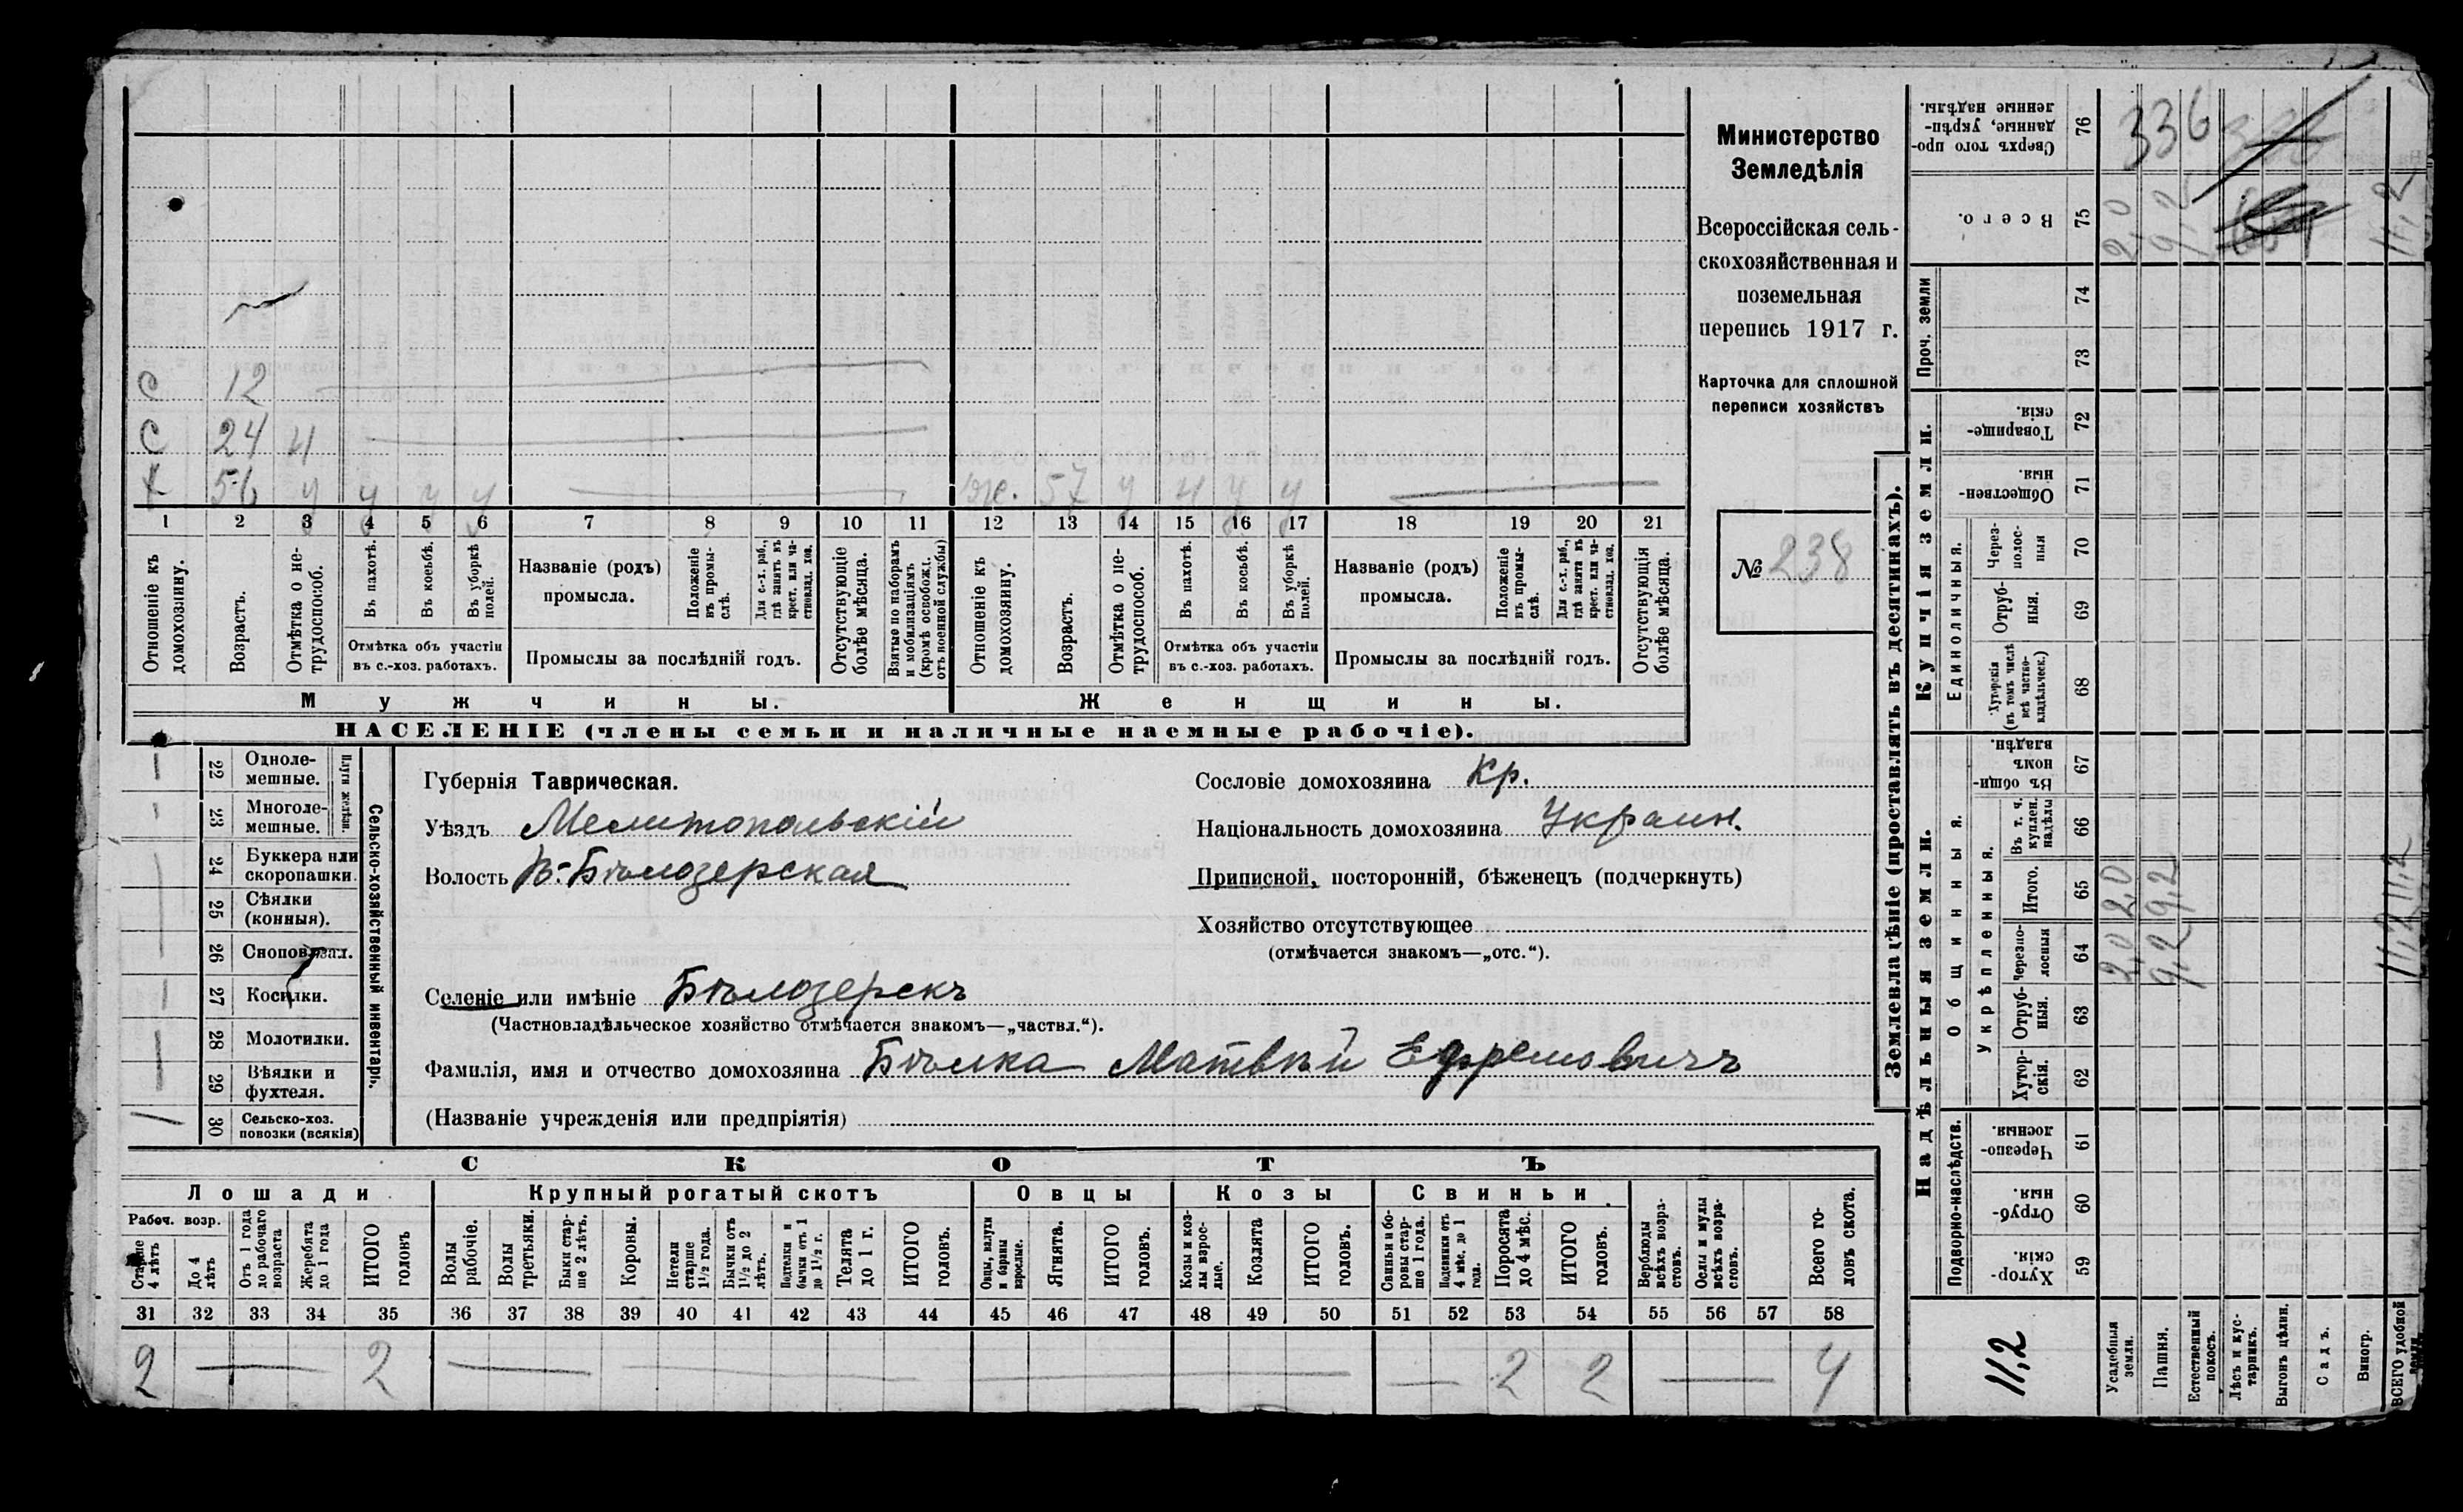 Министерство
Земледѣлія
Всероссійская сель-
скохозяйственная и
поземельная
перепись 1917 г.
Карточка для сплошной
переписи хозяйствъ
№ 238
С 12
С 24 н
Х 56 у у у у
Ж. 57 у н у у
1 2 3 4 5 6 7 8 9 10 11 12 13 14 15 16 17 18 19 20 21
Отношеніе къ домохозяину.
Возрастъ.
Отмѣтка о не-трудоспособ.
Въ пахотѣ.
Въ косьбѣ.
Въ уборкѣ полей.
Отмѣтка объ участіи
въ с.-хоз. работахъ.
Названіе (родъ)
промысла.
Положеніе въ промы-слѣ.
Для с.-х. раб., гдѣ занятъ въ крест. или ча-стновлад. хоз.
Промыслы за послѣдній годъ.
Отсутствующіе болѣе мѣсяца.
Взятые по наборамъ и мобилизаціямъ (кромѣ освобожд. отъ военной службы)
Отношеніе къ домохозяину.
Возрастъ.
Отмѣтка о не-трудоспособ.
Въ пахотѣ.
Въ косьбѣ.
Въ уборкѣ полей.
Отмѣтка объ участіи
въ с.-хоз. работахъ.
Названіе (родъ)
промысла.
Положеніе въ промы-слѣ.
Для с.-х. раб., гдѣ занята въ крест. или ча-стновлад. хоз.
Промыслы за послѣдній годъ.
Отсутствующія болѣе мѣсяца.
Мужчины. Женщины.
НАСЕЛЕНІЕ (члены семьи и наличные наемные рабочіе).
Сельско-хозяйственный инвентарь.
Плуги желѣзн.
22 Одноле-мешные.
23 Многоле-мешные.
24 Буккера или скоропашки.
25 Сѣялки (конныя).
26 Сноповязал.
27 Косилки.
28 Молотилки.
29 Вѣялки и фухтеля.
30 Сельско-хоз. повозки (всякія) 1
Губернія Таврическая.
Уѣздъ Мелитопольскій
Волость В.-Бѣлозерская
Селеніе или имѣніе Бѣлозерскъ
(Частновладѣльческое хозяйство отмѣчается знакомъ—„частвл.“).
Фамилія, имя и отчество домохозяина Бѣлка Матвѣй Ефремовичъ
(Названіе учрежденія или предпріятія)
Сословіе домохозяина Кр.
Національность домохозяина Украин.
Приписной, посторонній, бѣженецъ (подчеркнуть)
Хозяйство отсутствующее
(отмѣчается знакомъ—„отс.“).
СКОТЪ
Лошади Крупный рогатый скотъ Овцы Козы Свиньи
Рабоч. возр.
Старше 4 лѣтъ
До 4 лѣтъ
Отъ 1 года до рабочаго возраста
Жеребята до 1 года
ИТОГО головъ
Волы рабочіе.
Волы третьяки.
Быки стар-ше 2 лѣтъ.
Коровы.
Нетели старше 1½ года.
Бычки отъ 1½ до 2 лѣтъ.
Подтелки и бычки отъ 1 до 1½ г.
Телята до 1 г.
ИТОГО головъ.
Овцы, валухи и бараны взрослые.
Ягнята.
ИТОГО головъ.
Козы и коз-лы взрос-лые.
Козлята
ИТОГО головъ.
Свиньи и бо-ровы стар-ше 1 года.
Подсвинки отъ 4 мѣс. до 1 года.
Поросята до 4 мѣс.
ИТОГО головъ.
Верблюды всѣхъ возра-стовъ.
Ослы и мулы всѣхъ возра-стовъ.
Всего го-ловъ скота.
31 32 33 34 35 36 37 38 39 40 41 42 43 44 45 46 47 48 49 50 51 52 53 54 55 56 57 58
2 2 2 2 4
Землевладѣніе (проставлять въ десятинахъ).
Надѣльныя земли. Купчія земли. Проч. земли
Подворно-наслѣдств.
Общинныя.
Укрѣпленныя.
Единоличныя.
59 Хутор-скія.
60 Отруб-ныя.
61 Черезпо-лосныя.
62 Хутор-скія.
63 Отруб-ныя.
64 Черезпо-лосныя 2,0 9,2 11,2
65 Итого. 2,0 9,2 11,2
66 Въ т. ч. куплен. надѣлы
67 Въ общин-номъ владѣн.
68 Хуторскія (въ томъ числѣ всѣ частно-владѣльческ.)
69 Отруб-ныя.
70 Через-полос-ныя
71 Обществен-ныя.
72 Товарище-скія.
73
74
75 Всего. 2,0 9,2 11,2
76 Сверхъ того про-данные, укрѣп-ленные надѣлы.
336
11,2
Усадебныя земли.
Пашня.
Естественный покосъ.
Лѣсъ и кус-тарникъ.
Выгонъ цѣлин.
Садъ.
Виногр.
ВСЕГО удобной земли